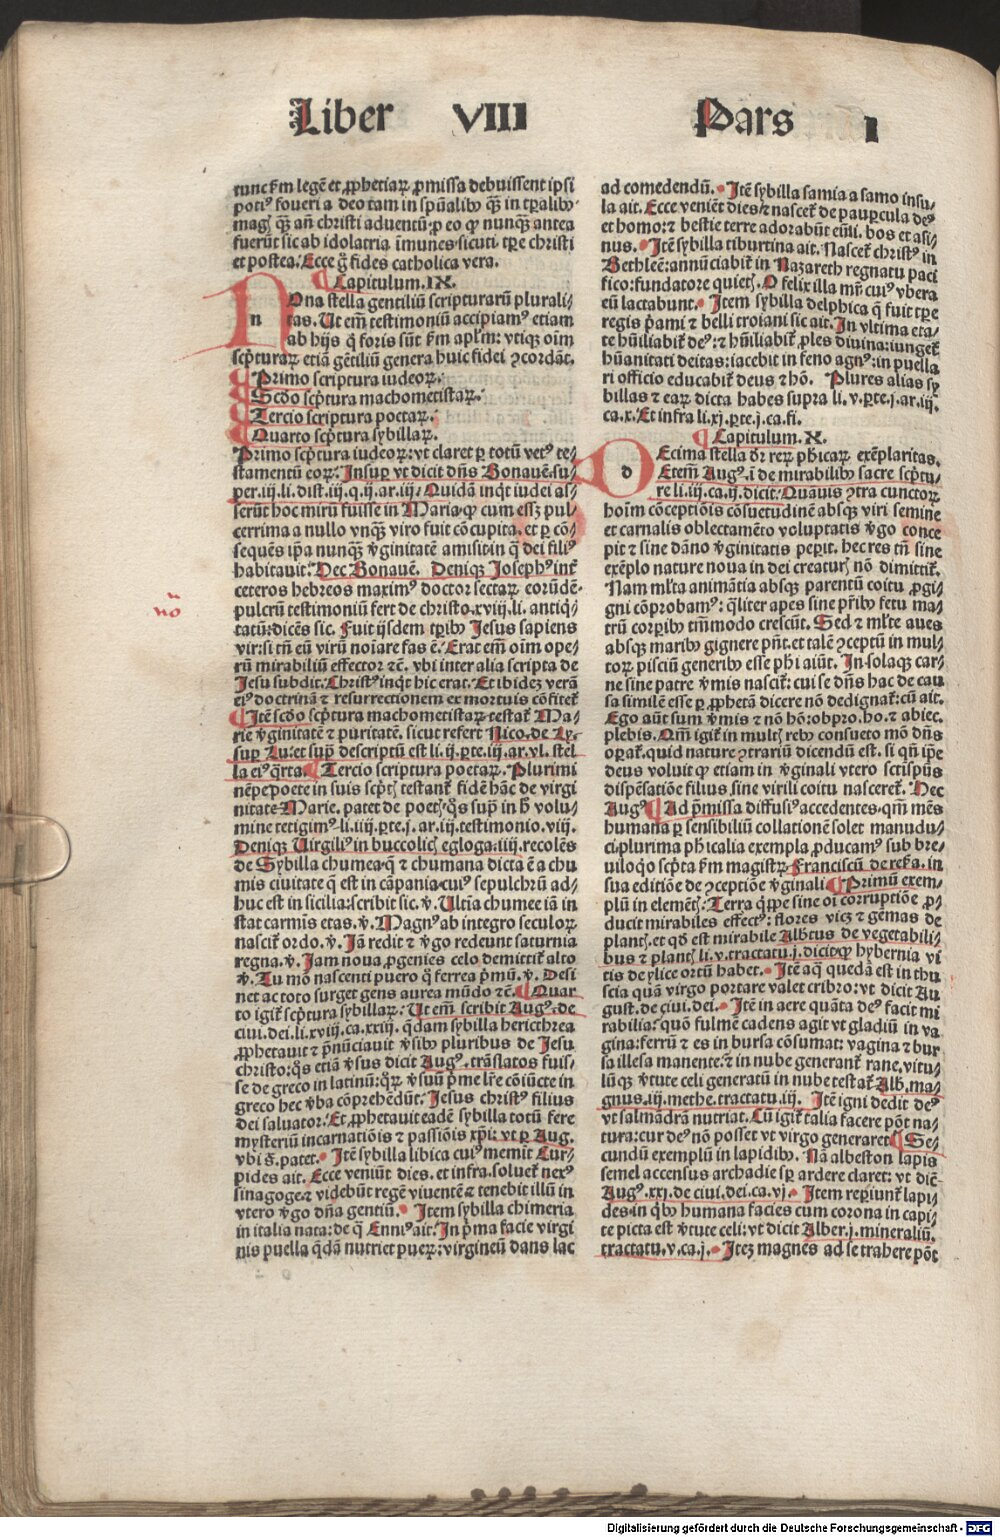 Liber VIII Pars I
tunc ẜm legē et ꝓphetiaꝝ ꝓmissa debuissent ipsi
potiꝰ foueri a deo tam in spūalibꝰ qꝫ in tꝑalibꝰ
magꝭ qꝫ añ christi aduentū: ꝑ eo ꝙ nunqꝫ antea
fuerūt sic ab idolatria īmunes sicuti tꝑe christi
et postea. Ecce g̊ fides catholica vera.
¶ Capitulum. IX.
Nona stella gentiliū scripturarū plurali/
tas. Ut em̄ testimoniū accipiamꝰ etiam
ab hijs q̄ foris sūt ẜm aplm̄: vtiqꝫ oīm
scpt̄uraꝝ etiā gētiliū genera huic fidei ↄcordāt.
¶ Primo scriptura iudeoꝝ.
¶ Scd̄o scpt̄ura machometistaꝝ.
¶ Tercio scriptura poetaꝝ.
¶ Quarto scpt̄ura sybillaꝝ.
Primo scpt̄ura iudeoꝝ: vt claret ꝑ totū vetꝰ te/
stamentū eoꝝ. Insuꝑ vt dicit dn̄s Bonauē. su/
per. iij. li. dist. iij. q. ij. ar. iij. Quidā inqͥt iudei as/
serūt hoc mirū fuisse in Maria ꝙ cum essꝫ pul/
cerrima a nullo vnqꝫ viro fuit cōcupita. et ꝑ cō/
sequēs ip̄a nunqꝫ v̄ginitatē amisit in q̄ dei filiꝰ
habitauit. Hec Bonauē. Deniqꝫ Josephꝰ int̄
ceteros hebreos maximꝰ doctor sectaꝝ eorūdē
pulcrū testimoniū fert de christo. xviij. li. antiqͥ/
tatū: dicēs sic. Fuit ijsdem tꝑibꝰ Jesus sapiens
vir: si tn̄ eū virū noiare fas ē. Erat em̄ oīm ope/
rū mirabiliū effector ⁊c̄. vbi inter alia scripta de
Jesu subdit. Christꝰ inqͥt hic erat. Et ibidez verā
eiꝰ doctrinā ⁊ resurrectionem ex mortuis cōfitet᷑
¶ Itē scd̄o scpt̄ura machometistaꝝ testat᷑ Ma/
rie v̄ginitatē ⁊ puritatē. sicut refert Nico. de Ly.
suꝑ Lu. et sup̄ descriptū est li. ij. ꝑte. iij. ar. vl. stel
la eiꝰ q̄rta. ¶ Tercio scriptura poetaꝝ. Plurimi
nēpe poete in suis scptꝭ testant᷑ fidē hāc de virgi
nitate Marie. patet de poetꝭ q̄s sup̄ in h̄ volu/
mine tetigimꝰ li. iiij. ꝑte. j. ar. iij. testimonio. viij.
Deniqꝫ Uirgiliꝰ in buccolicꝭ egloga. iiij. recolēs
de Sybilla chumea q̄ ⁊ chumana dicta ē a chu
mis ciuitate q̄ est in cāpania cuiꝰ sepulchrū ad/
huc est in sicilia: scribit sic. v̄. Ultīa chumee iā in
stat carmīs etas. v̄. Magnꝰ ab integro seculoꝝ
nascit᷑ ordo. v̄. Jā redit ⁊ v̄go redeunt saturnia
regna. v̄. Jam noua ꝓgenies celo demittit᷑ alto
v̄. Tu mō nascenti puero q̄ ferrea pͥmū. v̄. Desi
net ac toto surget gens aurea mūdo ⁊c̄. ¶ Quar
to igit᷑ scpt̄ura sybillaꝝ. Ut em̄ scribit Augꝰ. de
ciui. dei. li. xviij. ca. xxiij. qd̄am sybilla hericthrea
ꝓphetauit ⁊ pn̄ūciauit v̄sibꝰ pluribus de Jesu
christo: q̄s etiā v̄sus dicit Augꝰ. trāslatos fuis/
se de greco in latinū: qͦꝝ v̄suū pͥme lr̄e cōiūcte in
greco hec v̄ba cōprehēdūt. Jesus christꝰ filius
dei saluator. Et ꝓphetauit eadē sybilla totū fere
mysteriū incarnatiōis ⁊ passiōis xp̄i: vt ꝑ Aug.
vbi s̄. patet. Itē sybilla libica cuiꝰ memīt Eur/
pides ait. Ecce veniūt dies. et infra. soluet᷑ nexꝰ
sinagoge ⁊ videbūt regē viuentē ⁊ tenebit illū in
vtero v̄go dn̄a gentiū. Item sybilla chimeria
in italia nata: de q̄ Enniꝰ ait. In pͥma facie virgi
nis puella qd̄ā nutriet pueꝝ: virgineū dans lac
ad comedendū. Itē sybilla samia a samo insu/
la ait. Ecce veniēt dies ⁊ nascet᷑ de pauꝑcula deꝰ
et homo: ⁊ bestie terre adorabūt eū li. bos et asi/
nus. Itē sybilla tiburtina ait. Nascet᷑ christꝰ in
Bethleē: annūciabit᷑ in Nazareth regnatu paci
fico: fundatore quietꝭ. O felix illa mr̄ cuiꝰ vbera
eū lactabunt. Item sybilla delphica q̄ fuit tꝑe
regis pͥami ⁊ belli troiani sic ait. In vltima eta/
te hūiliabit᷑ deꝰ: ⁊ hūiliabit᷑ ꝓles diuina: iunget᷑
hūanitati deitas: iacebit in feno agnꝰ: in puella
ri officio educabit᷑ deus ⁊ hō. Plures alias sy
billas ⁊ eaꝝ dicta habes supra li. v. ꝑte. j. ar. iij.
ca. x. Et infra li. xj. ꝑte. j. ca. fi.
¶ Capitulum. X.
Decima stella dr̄ reꝝ phīcaꝝ exēplaritas.
Etem̄ Augꝰ. ī de mirabilibꝰ sacre scpt̄u/
re li. iij. ca. ij. dicit. Quāuis ↄtra cunctoꝝ
hoīm cōceptiōis cōsuetudinē absqꝫ viri semine
et carnalis oblectamēto voluptatis v̄go conce
pit ⁊ sine dāno v̄ginitatis peꝑit. hec res tn̄ sine
exēplo nature noua in dei creaturꝭ nō dimittit᷑.
Nam mlt̄a animātia absqꝫ parentū coitu ꝓgi/
gni cōprobamꝰ: qͣliter apes sine pr̄ibꝰ fetu ma/
trū corꝑibꝰ tm̄modo crescūt. Sed ⁊ mlt̄e aues
absqꝫ maribꝰ gignere pn̄t. et talē ↄceptū in mul/
toꝝ pisciū generibꝰ esse phī aiūt. In solaqꝫ car/
ne sine patre v̄mis nascit᷑: cui se dn̄s hac de cau
sa similē esse ꝑ ꝓphetā dicere nō dedignat᷑: cū ait.
Ego aūt sum v̄mis ⁊ nō hō: obpro. ho. ⁊ abiec.
plebis. Qm̄ igit᷑ in multꝭ rebꝰ consueto mō dn̄s
oꝑat᷑. quid nature ↄtrariū dicendū est. si qn̄ ip̄e
deus voluit ꝙ etiam in v̄ginali vtero sctīspūs
dispēsatiōe filius sine virili coitu nasceret᷑. Hec
Augꝰ ¶ Ad pͥmissa diffusiꝰ accedentes. qm̄ mēs
humana ꝑ sensibiliū collationē solet manudu/
ci. plurima phīcalia exempla ꝓducamꝰ sub bre/
uiloqͦ scptā ẜm magistꝝ Franciscū de reẜa. in
sua editiōe de ↄceptiōe v̄ginali ¶ Primū exem/
plū in elemētꝭ: Terra qͥppe sine oī corruptiōe ꝓ/
ducit mirabiles effectꝰ: flores vicꝫ ⁊ gēmas de
plantꝭ. et qd̄ est mirabile Albt̄us de vegetabili/
bus ⁊ plantꝭ li. v. tractatu. j. dicit ꝙ hybernia vi
tis de ylice ortū habet. Itē aq̄ quedā est in thu
scia quā virgo portare valet cribro: vt dicit Au
gust. de ciui. dei. Itē in aere quāta deꝰ facit mi
rabilia: quō fulmē cadens agit vt gladiū in va
gina: ferrū ⁊ es in bursa cōsumat: vagina ⁊ bur
sa illesa manente: ⁊ in nube generant᷑ rane, vitu/
lūqꝫ v̄tute celi generatū in nube testat᷑ Alb. ma/
gnus. iij. methe. tractatu. iij. Itē igni dedit deꝰ
vt salmādrā nutriat. Cū igit᷑ talia facere pōt na/
tura: cur deꝰ nō posset vt virgo generaret ¶ Se/
cundū exemplū in lapidibꝰ. Nā albeston lapis
semel accensus archadie sꝑ ardere claret: vt dic̄
Augꝰ. xxj. de ciui. dei. ca. vj. Item reꝑiunt᷑ lapi/
des in qͥbꝰ humana facies cum corona in capi/
te picta est v̄tute celi: vt dicit Alber. j. mineraliū.
tractatu. v. ca. j. Itez magnes ad se trahere pōt
Digitalisierung gefördert durch die Deutsche Forschungsgemeinschaft - DFG